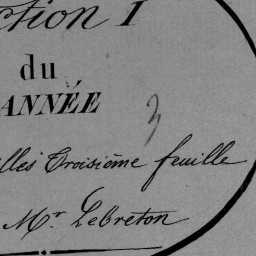 ction I
du
ANNÉE
3
illes Troisième feuille
Mr. Lebreton